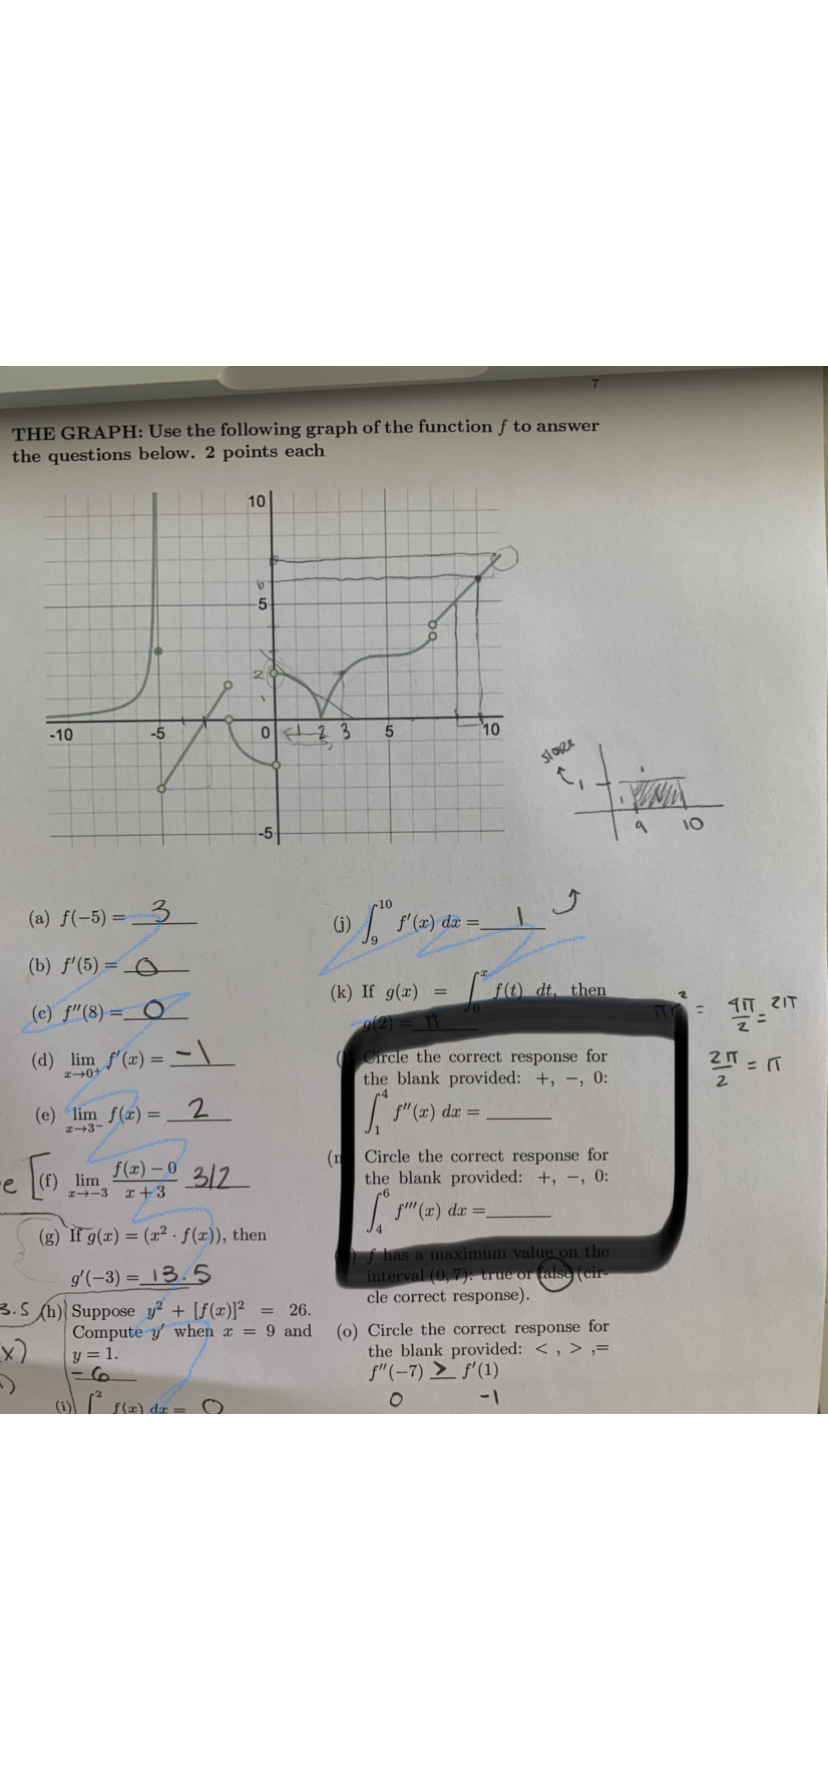 7
THE GRAPH: Use the following graph of the function f to answer
the questions below. 2 points each
10
6
5
2
-10
-5
0
1
2
3
5
10
-5
slope
1
9
10
(a) f(−5) = 3
(b) f′(5) = 0
(c) f″(8) = 0
(d) lim x→0+ f′(x) = −1
(e) lim x→3− f(x) = 2
(f) lim x→−3 f(x) − 0 / x + 3 3/2
(g) If g(x) = (x² · f(x)), then
g′(−3) = 13.5
3.5 (h) Suppose y² + [f(x)]² = 26.
Compute y′ when x = 9 and
y = 1.
−6
(i) ∫² f(x) dx = 0
(j) ∫₉¹⁰ f′(x) dx = 1
(k) If g(x) = ∫₀ˣ f(t) dt, then
g(2) = π
πr² = 4π/2 = 2π
2π/2 = π
Circle the correct response for
the blank provided: +, −, 0:
∫₁⁴ f″(x) dx =
Circle the correct response for
the blank provided: +, −, 0:
∫₄⁶ f‴(x) dx =
) f has a maximum value on the
interval (0,7): true or false (cir-
cle correct response).
(o) Circle the correct response for
the blank provided: < , > ,=
f″(−7) > f′(1)
0 −1